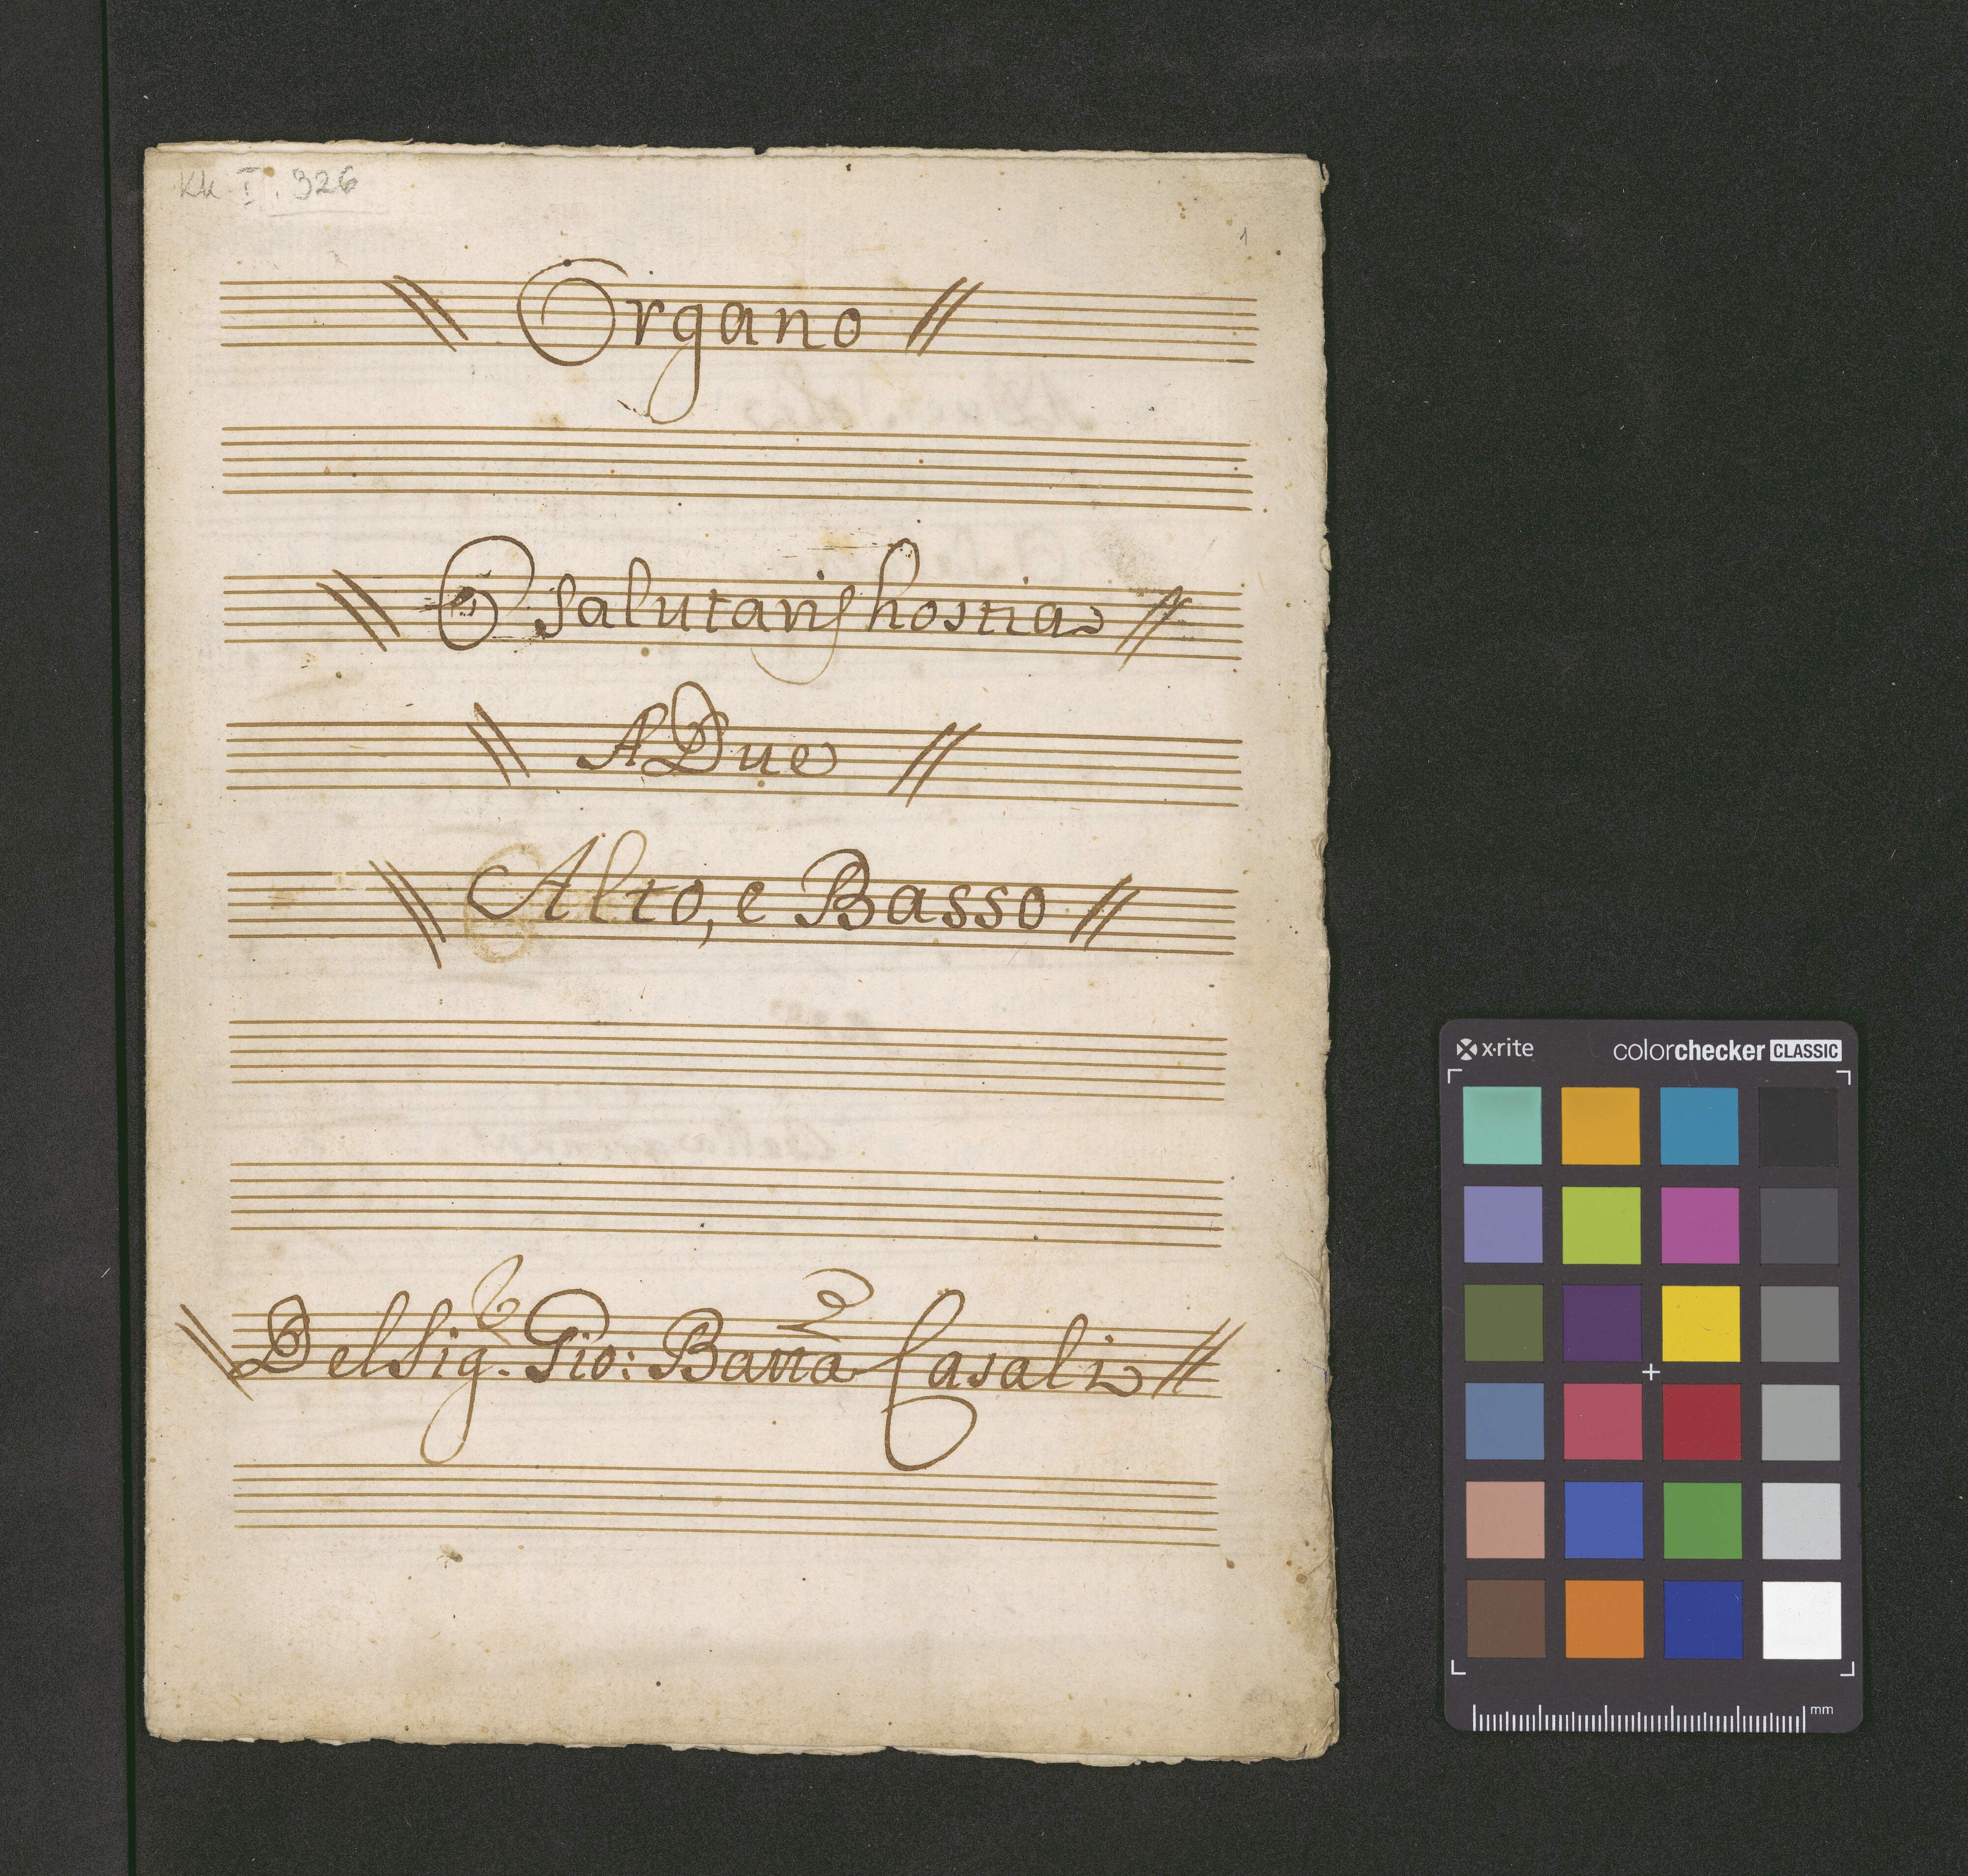 Kk I. 326
1
\\ Organo //
\\ O salutaris hostia //
\\ A Due //
\\ Alto, e Basso //
\\ Del Sig.r Gio: Batta Casali //
x·rite colorchecker CLASSIC
mm